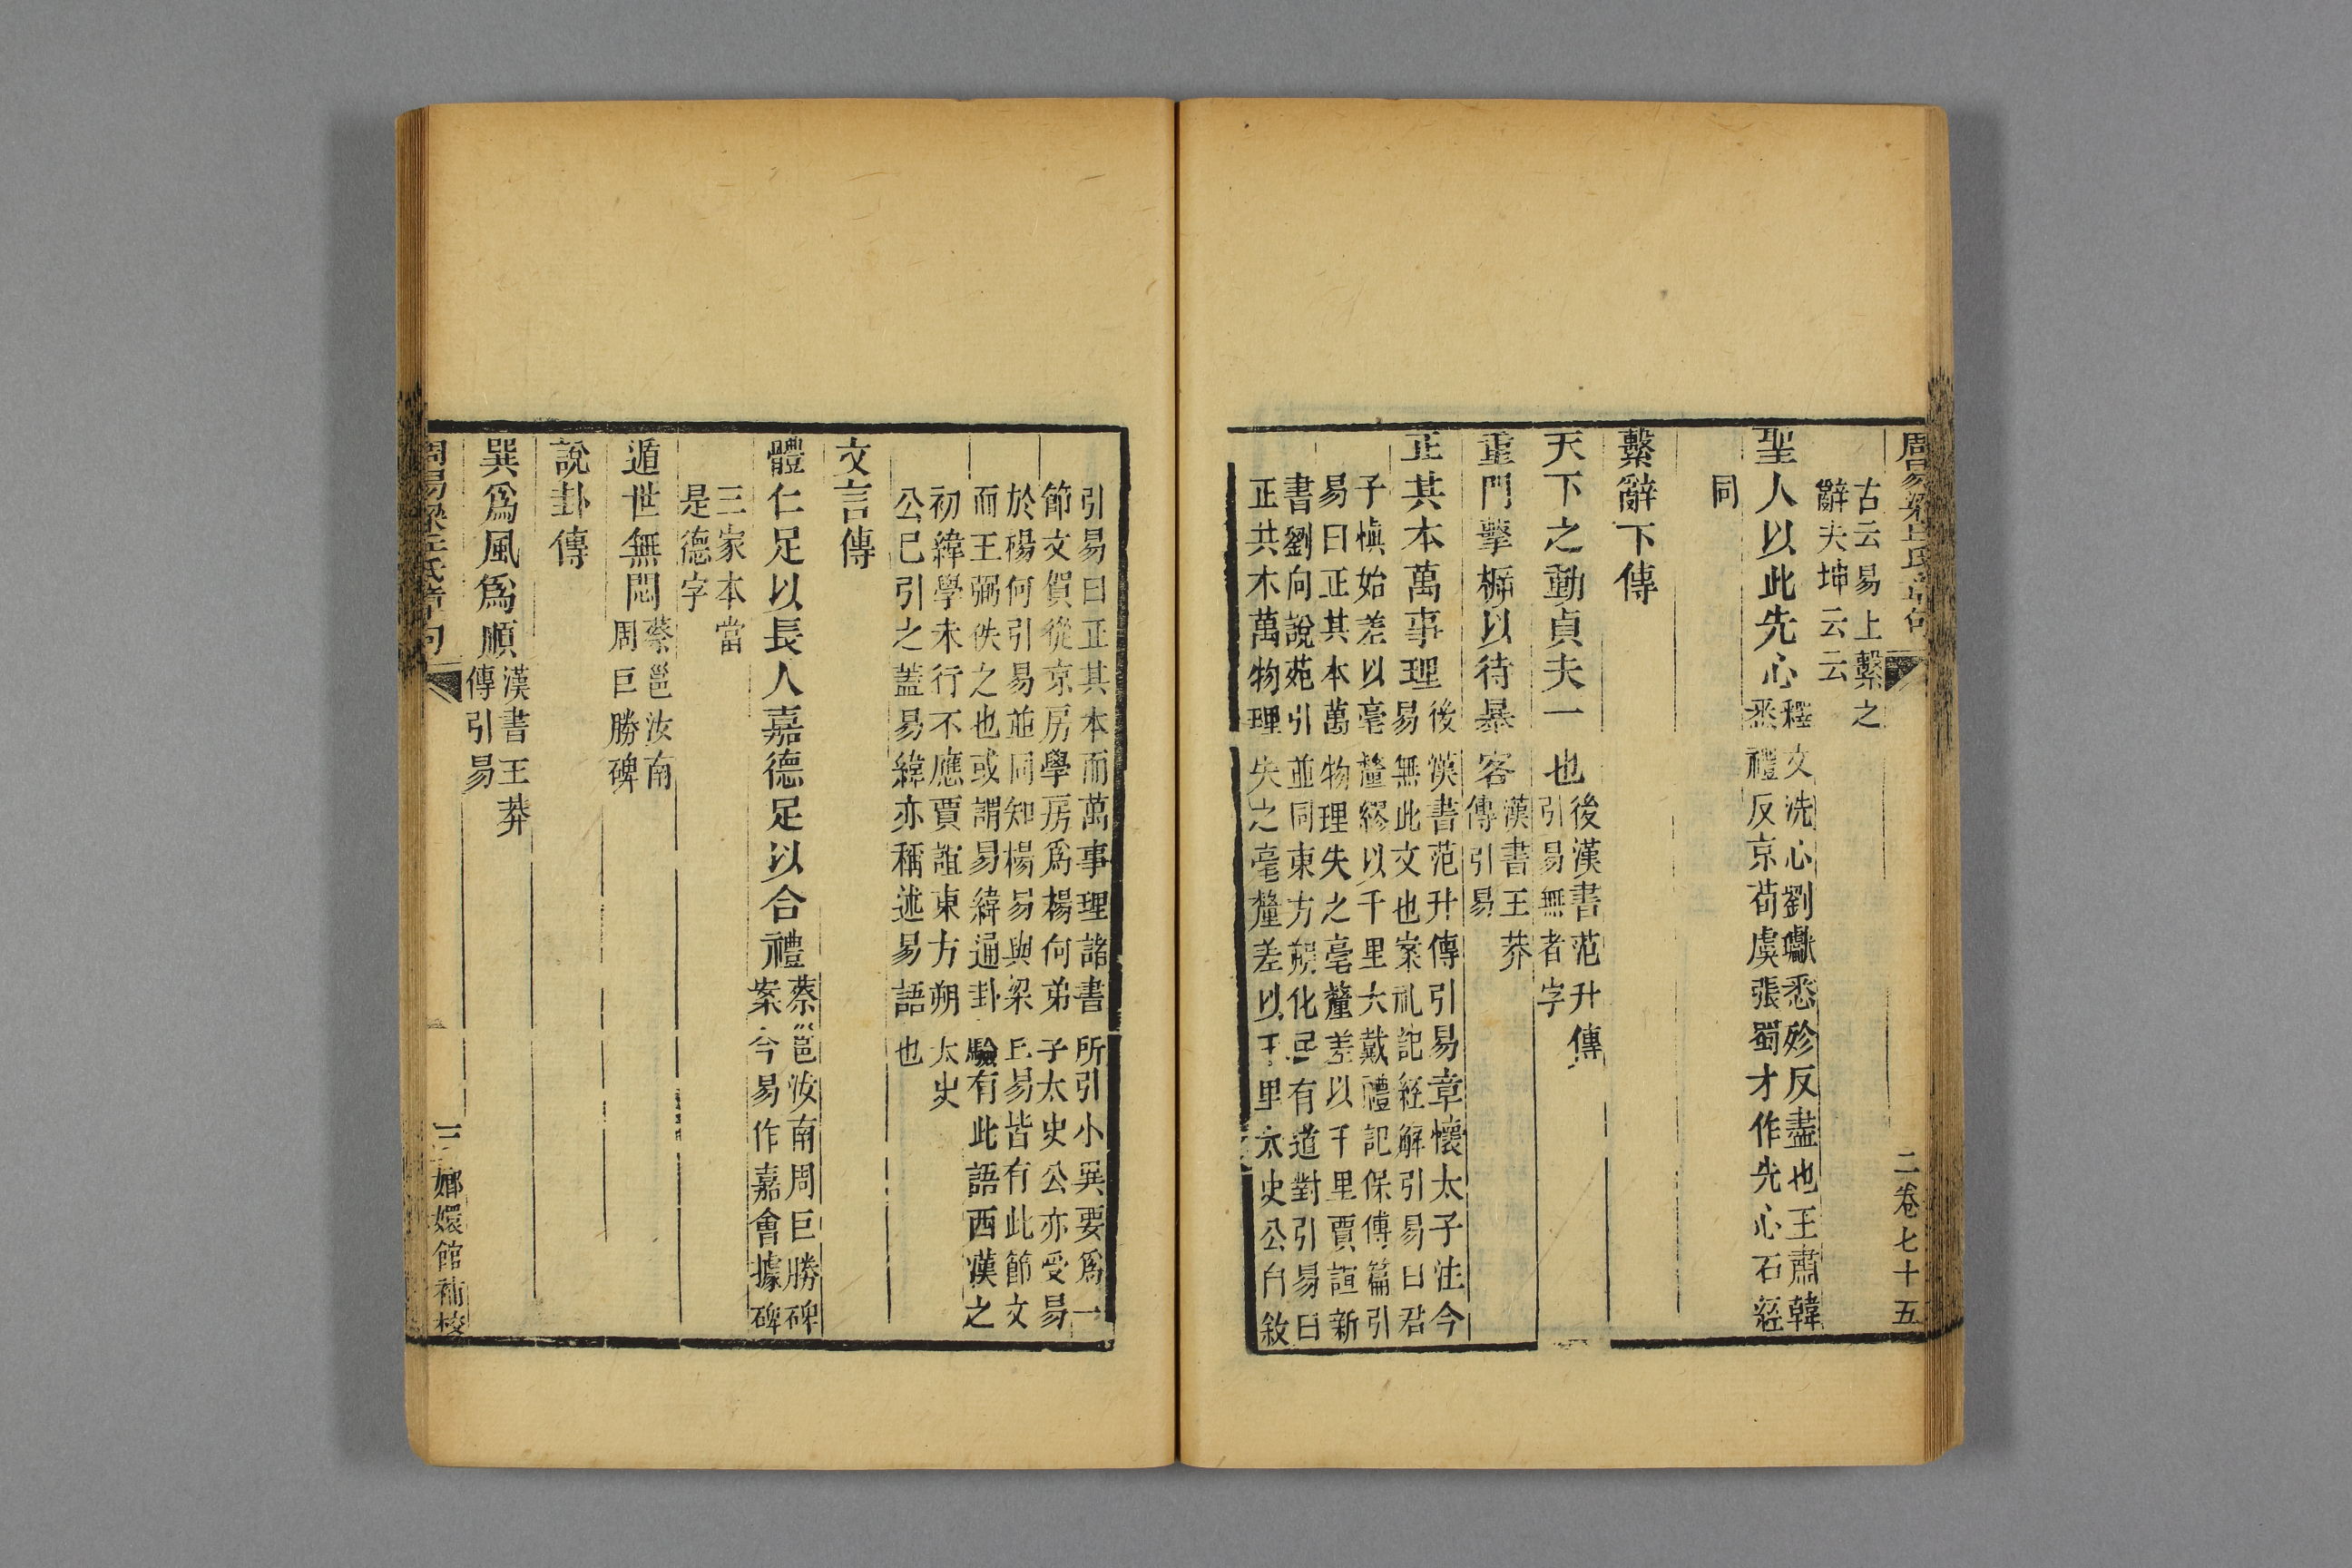 周易梁丘氏章句
二卷七十五
古云易上繫之
辭夫坤云云
聖人以此先心釋文洗心劉瓛悉殄反盡也王肅韓
悉禮反京荀虞張蜀才作先心石經
同
繫辭下傳
天下之動貞夫一也後漢書范升傳
引易無者字
重門擊㯓以待暴客漢書王莽
傳引易
正其本萬事理後漢書范升傳引易章懷太子注今
易無此文也案禮記經解引易曰君
子慎始差以毫釐繆以千里大戴禮記保傅篇引
易曰正其本萬物理失之毫釐差以千里賈誼新
書劉向說苑引並同東方朔化民有道對引易曰
正其本萬物理失之毫釐差以千里太史公自敘
引易曰正其本而萬事理諸書所引小異要爲一
節文賀從京房學房爲楊何弟子太史公亦受易
於楊何引易並同知楊易與梁丘易皆有此節文
而王弼佚之也或謂易緯通卦驗有此語西漢之
初緯學未行不應賈誼東方朔太史
公已引之蓋易緯亦稱述易語也
文言傳
體仁足以長人嘉德足以合禮蔡邕汝南周巨勝碑
案今易作嘉會據碑
三家本當
是德字
遁世無悶蔡邕汝南
周巨勝碑
說卦傳
巽爲風爲順漢書王莽
傳引易
周易梁丘氏章句
三
嫏嬛館補校